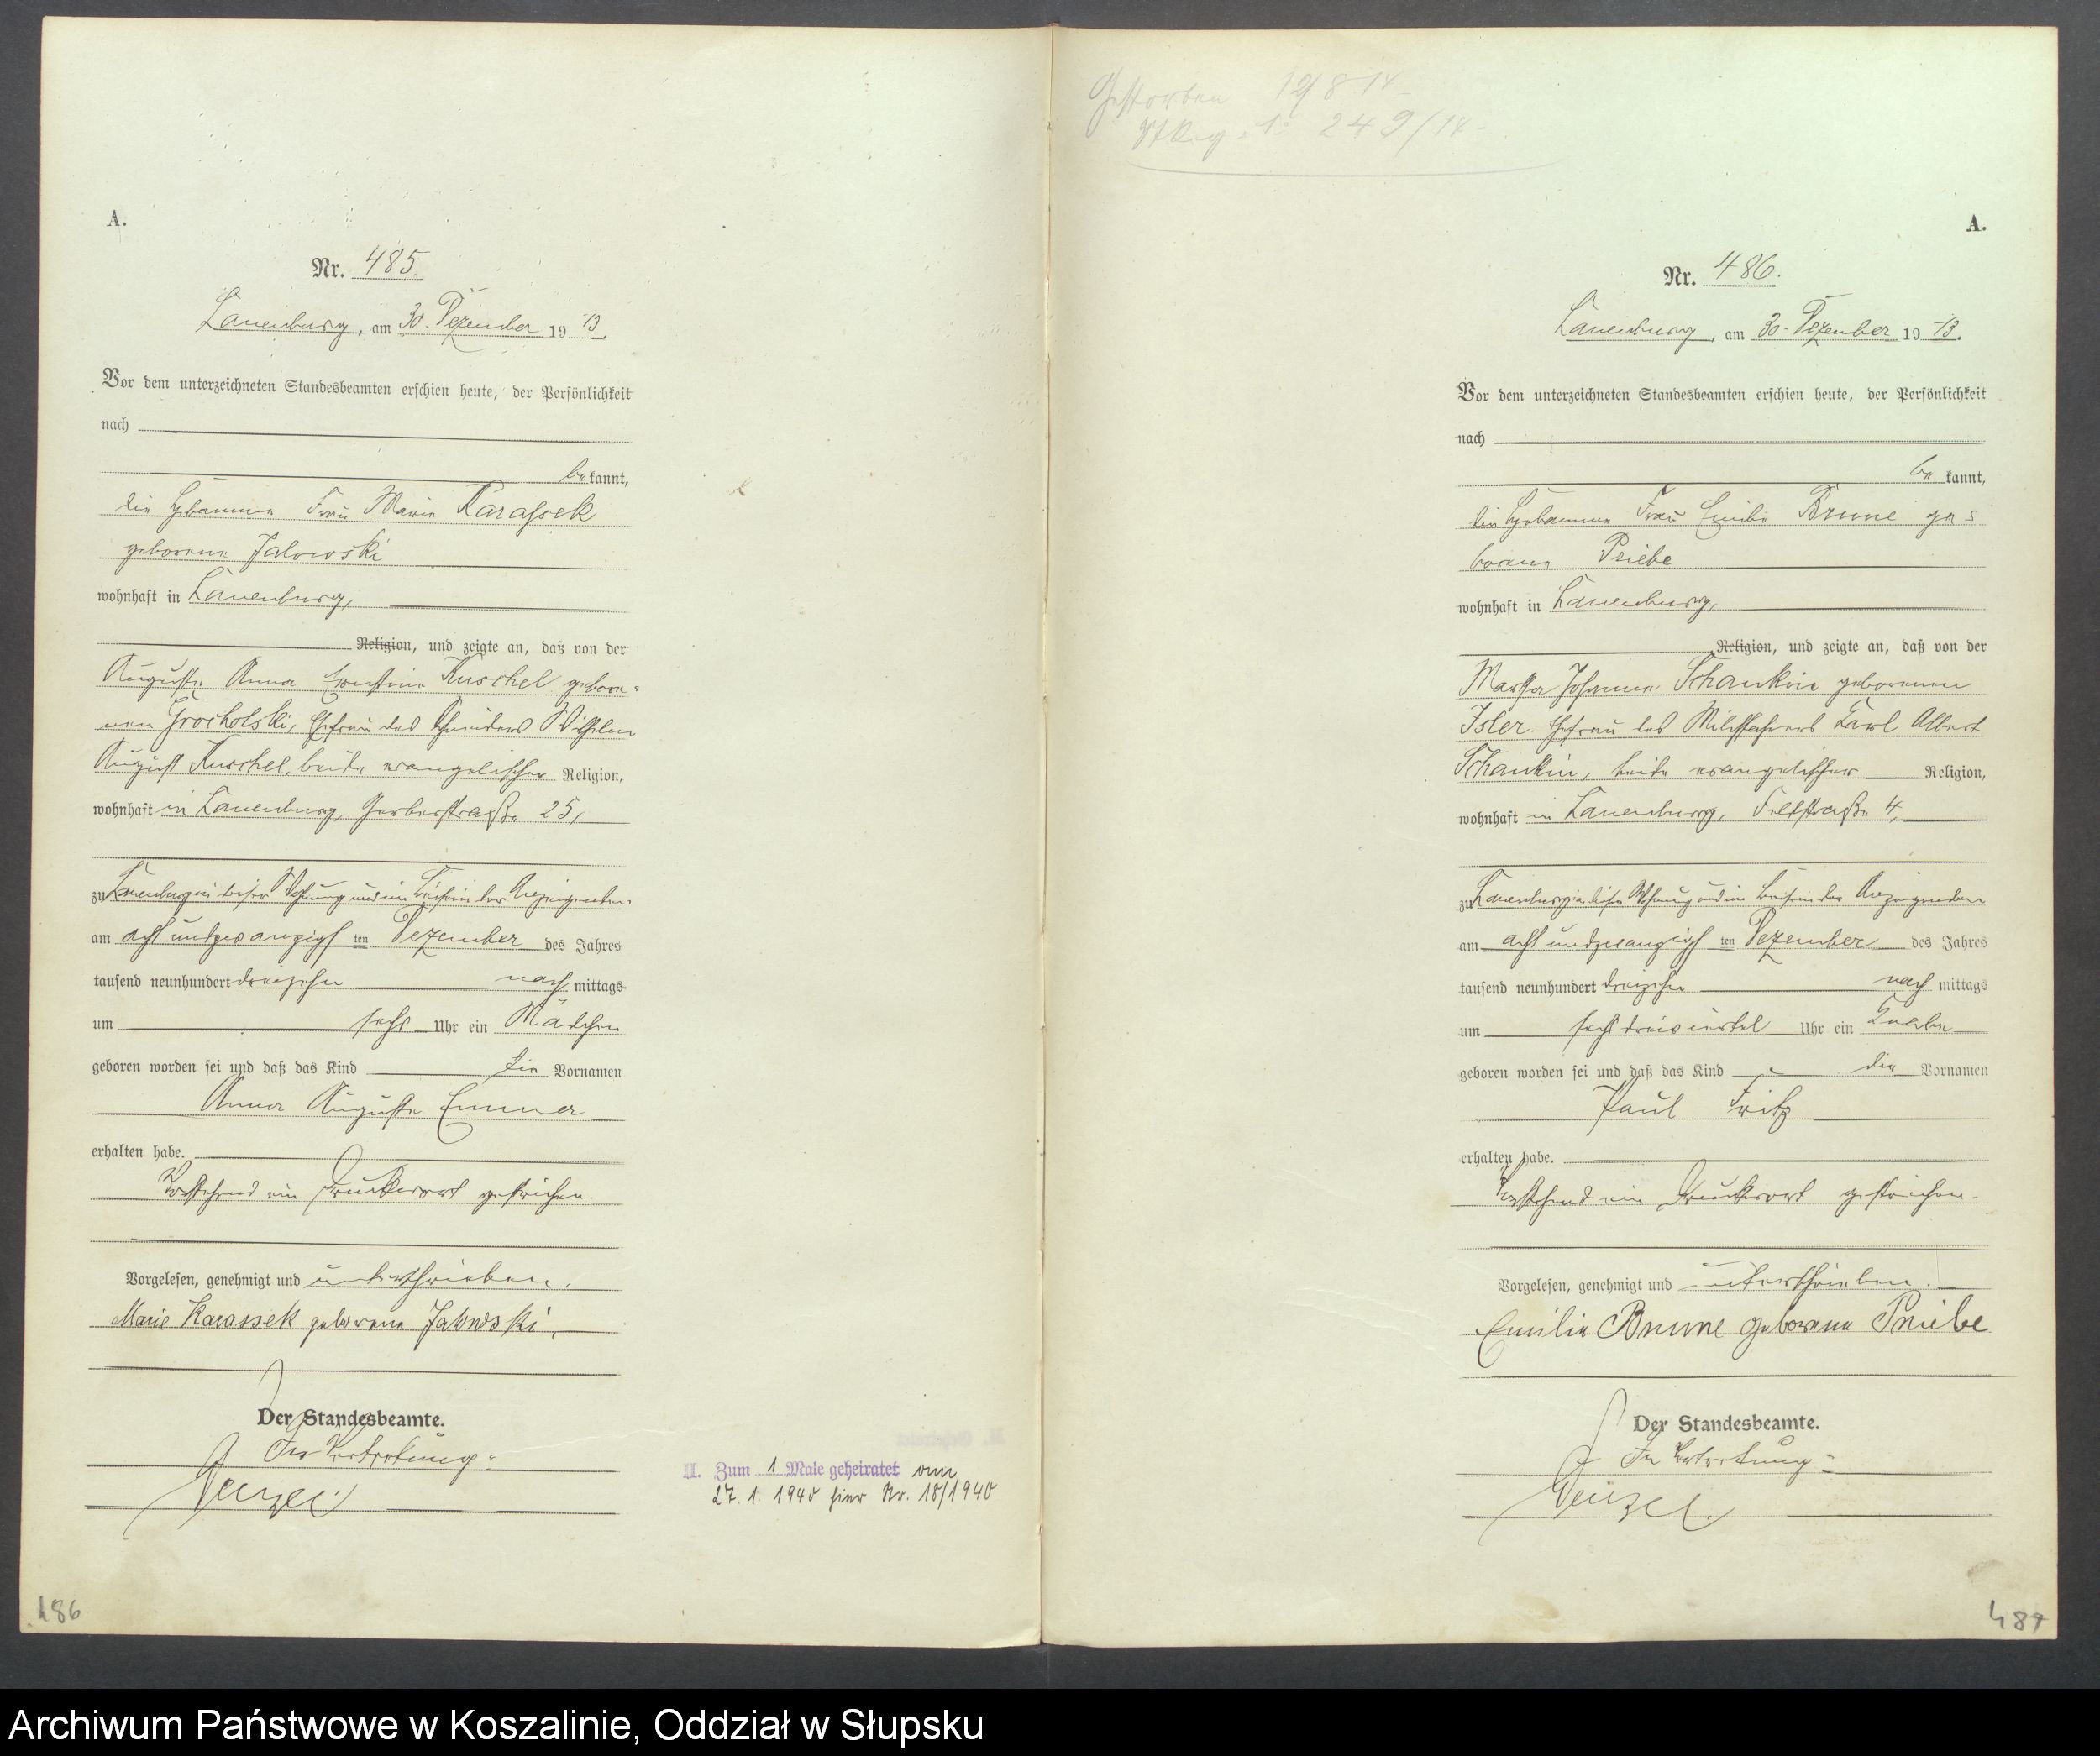 A.
Nr. 485.
Lauenburg, am 30. Dezember 1913.
Vor dem unterzeichneten Standesbeamten erschien heute, der Persönlichkeit
nach
bekannt,
die Hebamme Frau Marie Karassek
geborene Jalowski
wohnhaft in Lauenburg,
Religion, und zeigte an, daß von der
Auguste Anna Ernstine Kuschel gebore-
nen Grocholski, Ehefrau des Schneiders Wilhelm
August Kuschel, beide evangelischer Religion,
wohnhaft in Lauenburg, Gerberstraße 25,
zu Lauenburg in dieser Wohnung und im Beisein der Anzeigenden
am acht und zwanzigsten Dezember des Jahres
tausend neunhundert dreizehn nachmittags
um sechs Uhr ein Mädchen
geboren worden sei und daß das Kind die Vornamen
Anna Auguste Emma
erhalten habe.
Vorstehend ein Druckwort gestrichen.
Vorgelesen, genehmigt und unterschrieben.
Marie Karassek geborene Jalowski.
Der Standesbeamte.
In Vertretung:
H. Zum 1 Male geheiratet am
27. 1. 1940 hier Nr. 10/1940
486
Gestorben 12/8 14
StReg. 249/14
A.
Nr. 486.
Lauenburg, am 30. Dezember 1913.
Vor dem unterzeichneten Standesbeamten erschien heute, der Persönlichkeit
nach
bekannt,
die Hebamme Frau Emilie Brune ge-
borene Priebe
wohnhaft in Lauenburg,
Religion, und zeigte an, daß von der
Martha Johanne Schankin geborenen
Isler Ehefrau des Milchfahrers Karl Albert
Schankin, beide evangelischer Religion,
wohnhaft in Lauenburg, Feldstraße 4,
zu Lauenburg in dieser Wohnung und im Beisein der Anzeigenden
am acht und zwanzigsten Dezember des Jahres
tausend neunhundert dreizehn nachmittags
um sechs dreiviertel Uhr ein Knabe
geboren worden sei und daß das Kind die Vornamen
Paul Fritz
erhalten habe.
Vorstehend ein Druckwort gestrichen.
Vorgelesen, genehmigt und unterschrieben.
Emilie Brune geborene Priebe
Der Standesbeamte.
In Vertretung:
487
Archiwum Państwowe w Koszalinie, Oddział w Słupsku